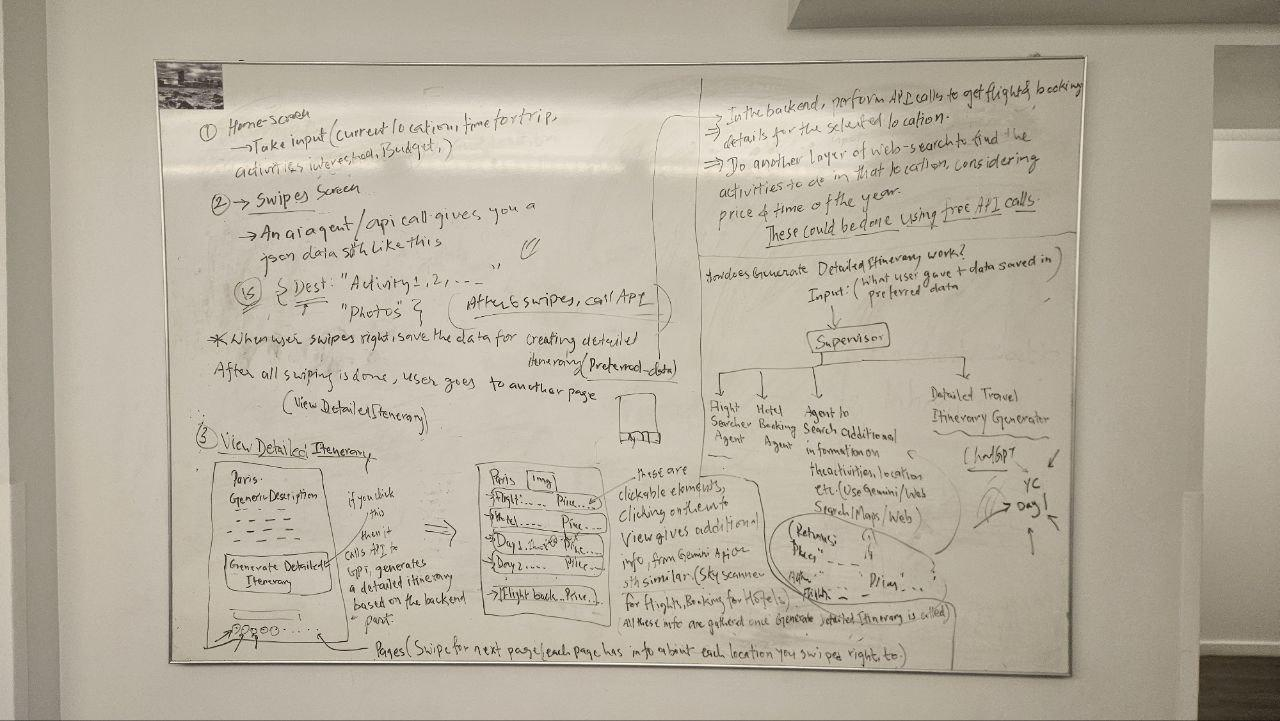 ① Home-screen
→ Take input (current location, time for trip,
activities interested, Budget,)
② → Swipes Screen
→ An ai agent/api call gives you a
json data sth like this
15 { Dest: "Activity 1, 2, .... "
"Photos" }
After 6 swipes, call API
* When user swipes right, save the data for creating detailed
itenerary (Preferred-data)
After all swiping is done, user goes to another page
(View Detailed Itenerary)
③ View Detailed Itenerary
Paris
Generic Description
Generate Detailed
Itenerary
if you click
this
then it
calls API to
GPT, generates
a detailed itinerary
based on the backend
part.
Paris img
→ Flight: .... Price....
Hotel.... Price....
→ Day 1. Price...
→ Day 2.... Price...
→ Flight back .. Price..
→ these are
clickable elements,
clicking on them to
view gives additional
info, from Gemini Api or
sth similar. (Sky scanner
for flights, Booking for Hotels)
(All these info are gathered once Generate detailed Itinerary is called)
Pages (Swipe for next page/each page has info about each location you swipes right to.)
→ In the backend, perform API calls to get flight & booking
⇒ details for the selected location.
⇒ Do another layer of web-search to find the
activities to do in that location, considering
price & time of the year.
These could be done using free API calls.
How does Generate Detailed Itinerary work?
Input: (What user gave + data saved in
preferred data)
Supervisor
Flight
Searcher
Agent
Hotel
Booking
Agent
Agent to
Search additional
information on
the activities, location
etc. (Use Gemini/Web
Search/Maps/Web)
Detailed Travel
Itinerary Generator
ChatGPT
YC
Day 1
(Returns;